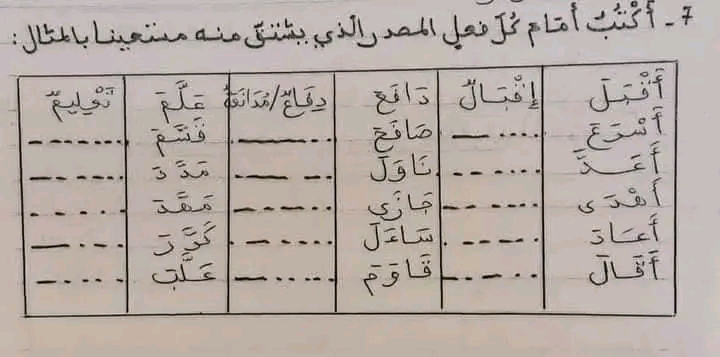 7- أُكْتُبُ أمَام كُلّ فعلٍ المصدر الّذي يشتقّ منه مستعينا بالمثال:
أَقْبَلَ إِقْبَالٌ دَافَعَ دِفَاعٌ/مُدَافَعَةٌ عَلَّمَ تَعْلِيمٌ
أَسْرَعَ ........ صَافَحَ ........ قَسَّمَ ........
أَعَدَّ ........ نَاوَلَ ........ مَدَّدَ ........
أَهْدَى ........ جَازَى ........ مَهَّدَ ........
أَعَادَ ........ سَاءَلَ ........ كَرَّرَ ........
أَقَالَ ........ قَاوَمَ ........ عَلَّبَ ........